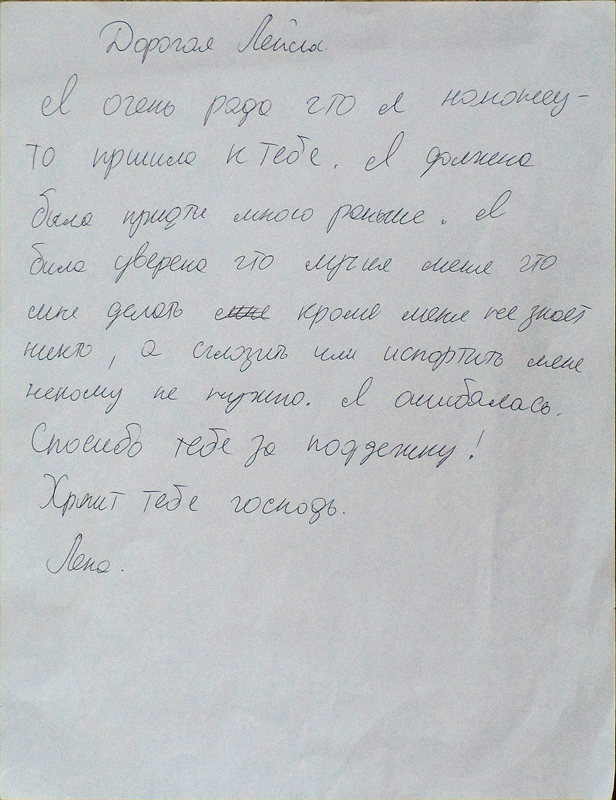 Дорогая Лейла
Я очень рада что я наконец-
то пришла к тебе. Я должена
была придти много раньше. Я
била уверена что лучия меня что
мне делать кроме меня не знает
никто, а сглозить или испортить мене
некому не нужно. Я ошибалась.
Спосибо тебе за поддежку!
Хрнит тебе господь.
Лена.